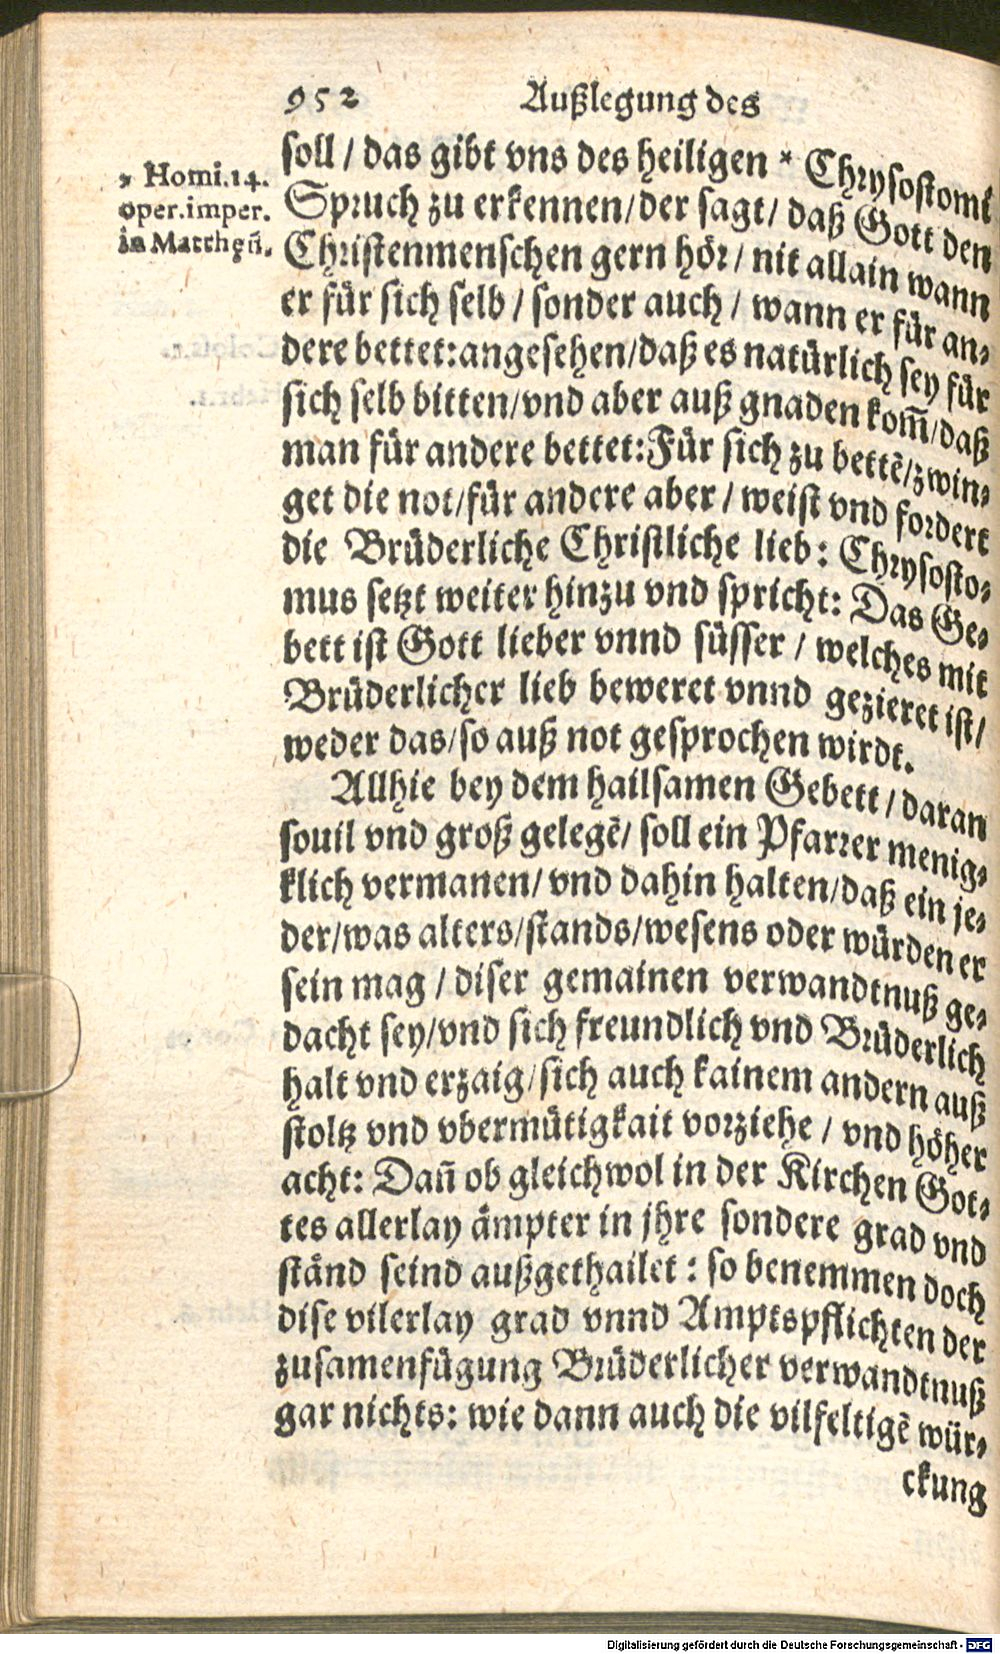 952 Außlegung des
* Homi.14.
oper.imper.
in Matthęū.
soll / das gibt vns des heiligen * Chrysostomi
Spruch zu erkennen/der sagt/ daß Gott den
Christenmenschen gern hör / nit allain wann
er für sich selb / sonder auch / wann er für an-
dere bettet:angesehen/daß es natürlich sey für
sich selb bitten/vnd aber auß gnaden kom̄/daß
man für andere bettet:Für sich zu bettē/zwin-
get die not/für andere aber / weist vnd fordert
die Brüderliche Christliche lieb: Chrysosto-
mus setzt weiter hinzu vnd spricht: Das Ge-
bett ist Gott lieber vnnd süsser / welches mit
Brüderlicher lieb beweret vnnd gezieret ist/
weder das/so auß not gesprochen wirdt.
Allhie bey dem hailsamen Gebett / daran
souil vnd groß gelegē/ soll ein Pfarrer menig-
klich vermanen/ vnd dahin halten/daß ein je-
der/was alters/stands/wesens oder würden er
sein mag / diser gemainen verwandtnuß ge-
dacht sey/vnd sich freundlich vnd Brüderlich
halt vnd erzaig/sich auch kainem andern auß
stoltz vnd vbermütigkait vorziehe / vnd höher
acht: Dañ ob gleichwol in der Kirchen Got-
tes allerlay ämpter in jhre sondere grad vnd
ständ seind außgethailet : so benemmen doch
dise vilerlay grad vnnd Amptspflichten der
zusamenfügung Brüderlicher verwandtnuß
gar nichts: wie dann auch die vilfeltigē wür-
ckung
Digitalisierung gefördert durch die Deutsche Forschungsgemeinschaft - DFG